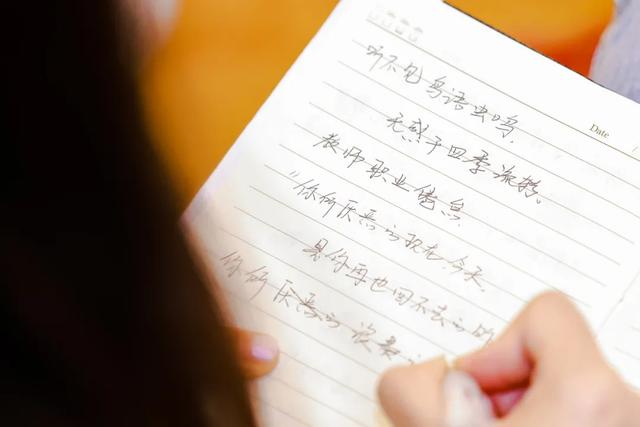 Date
听不见鸟语虫鸣,
无感于四季流转。
教师职业倦怠
"你所厌恶的现在,今天,
是你再也回不去的昨
你所厌恶的浪费